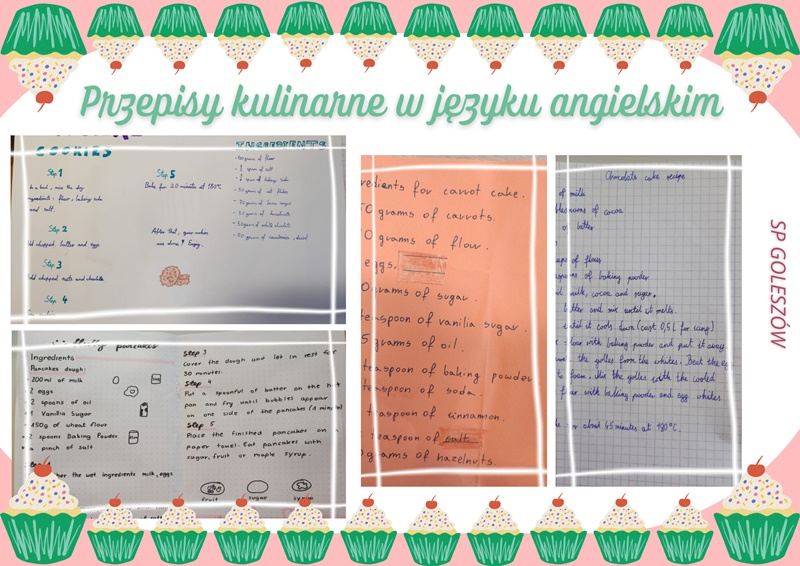 Przepisy kulinarne w języku angielskim
COOKIES
Step 1
mix the dry
ingredients: flour, baking soda
and salt.
Step 2
chopped butter and eggs
Step 3
chopped nuts and chocolate
Step 4
Step 5
Bake for 20 minutes at 180°C
After that, your cookies
are done! Enjoy.
INGREDIENTS
grams of flour
of salt
of baking soda
grams of
grams of brown sugar
grams of hazelnuts
grams of white chocolate
grams of
pancakes
Ingredients
Pancakes dough:
200ml of milk
2 eggs
2 spoons of oil
1 Vanilia Sugar
450g of wheat flour
2 spoons Baking Powder
a pinch of salt
the wet ingredients milk, eggs
Step 3
Cover the dough and let in rest for
30 minutes.
Step 4
Put a spoonful of batter on the hot
pan and fry until bubbles appear
on one side of the pancakes
Step 5
Place the finished pancakes on a
paper towel. Eat pancakes with
sugar, fruit or maple syrup.
fruit
sugar
syrup
redients for carrot cake.
0 grams of carrots.
0 grams of flour.
eggs.
0 grams of sugar.
teaspoon of vanilia sugar.
5 grams of oil.
teaspoon of baking powder
teaspoon of soda.
teaspoon of cinnamon.
teaspoon of salt.
0 grams of hazelnuts.
Chocolate cake recipe
of milk
of cocoa
of butter
of flour
of baking powder
milk, cocoa and sugar.
butter and mix until it melts.
until it cools down (cast 0,5 L for icing)
flour with baking powder and put it away.
the yolks from the whites. Beat the egg
to foam. Mix the yolks with the cooled
flour with baking powder and egg whites
for about 45 minutes at 180°C.
SP GOLESZÓW